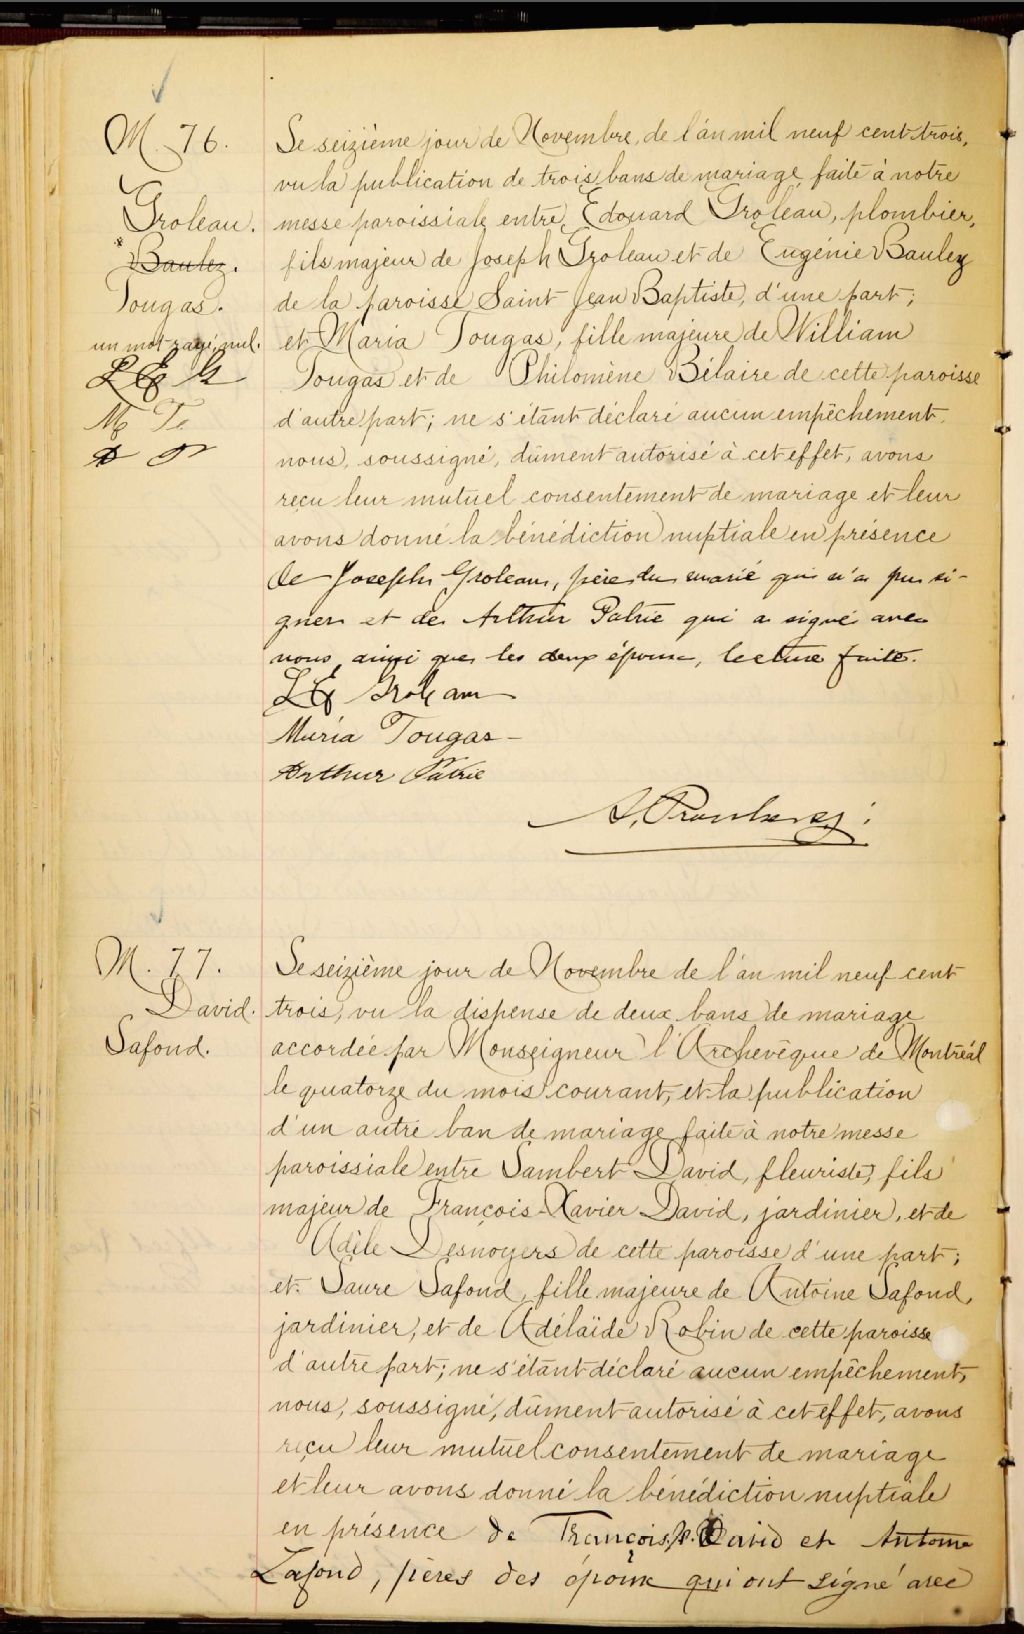 M. 76.
Groleau.
Baulez.
Tougas.
un mot rayé, nul.
L E G
M T
A P
Le seizième jour de Novembre, de l'an mil neuf cent trois,
vu la publication de trois bans de mariage, faite à notre
messe paroissiale entre, Edouard Groleau, plombier,
fils majeur de Joseph Groleau et de Eugénie Baulez
de la paroisse Saint Jean Baptiste, d'une part;
et Maria Tougas, fille majeure de William
Tougas et de Philomène Bélaire de cette paroisse
d'autre part; ne s'étant déclaré aucun empêchement,
nous, soussigné, dûment autorisé à cet effet, avons
reçu leur mutuel consentement de mariage et leur
avons donné la bénédiction nuptiale en présence
de Joseph Groleau, père du marié qui n'a pu si-
gner et de Arthur Patrie qui a signé avec
nous, ainsi que les deux époux, lecture faite.
L E Groleau
Maria Tougas
Arthur Patrie
M. 77.
David.
Lafond.
Le seizième jour de Novembre de l'an mil neuf cent
trois, vu la dispense de deux bans de mariage
accordée par Monseigneur l'Archevêque de Montréal
le quatorze du mois courant, et la publication
d'un autre ban de mariage faite à notre messe
paroissiale entre Lambert David, fleuriste, fils
majeur de François-Xavier David, jardinier, et de
Adèle Desnoyers de cette paroisse d'une part;
et Laure Lafond, fille majeure de Antoine Lafond,
jardinier, et de Adélaïde Robin de cette paroisse
d'autre part; ne s'étant déclaré aucun empêchement,
nous, soussigné, dûment autorisé à cet effet, avons
reçu leur mutuel consentement de mariage
et leur avons donné la bénédiction nuptiale
en présence de François David et Antoine
Lafond, pères des époux qui ont signé avec